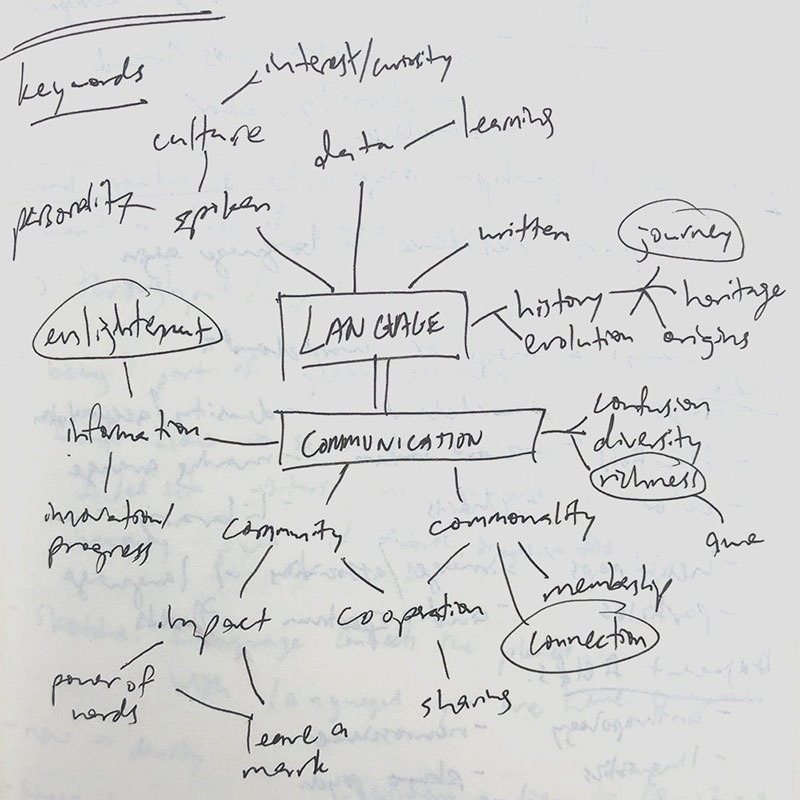 keywords
interest/curiosity
culture
data
learning
personality
spoken
written
journey
LANGUAGE
history
heritage
evolution
origins
enlightenment
information
COMMUNICATION
confusion
diversity
richness
innovation/
progress
community
commonality
impact
cooperation
membership
connection
power of
words
sharing
leave a
mark